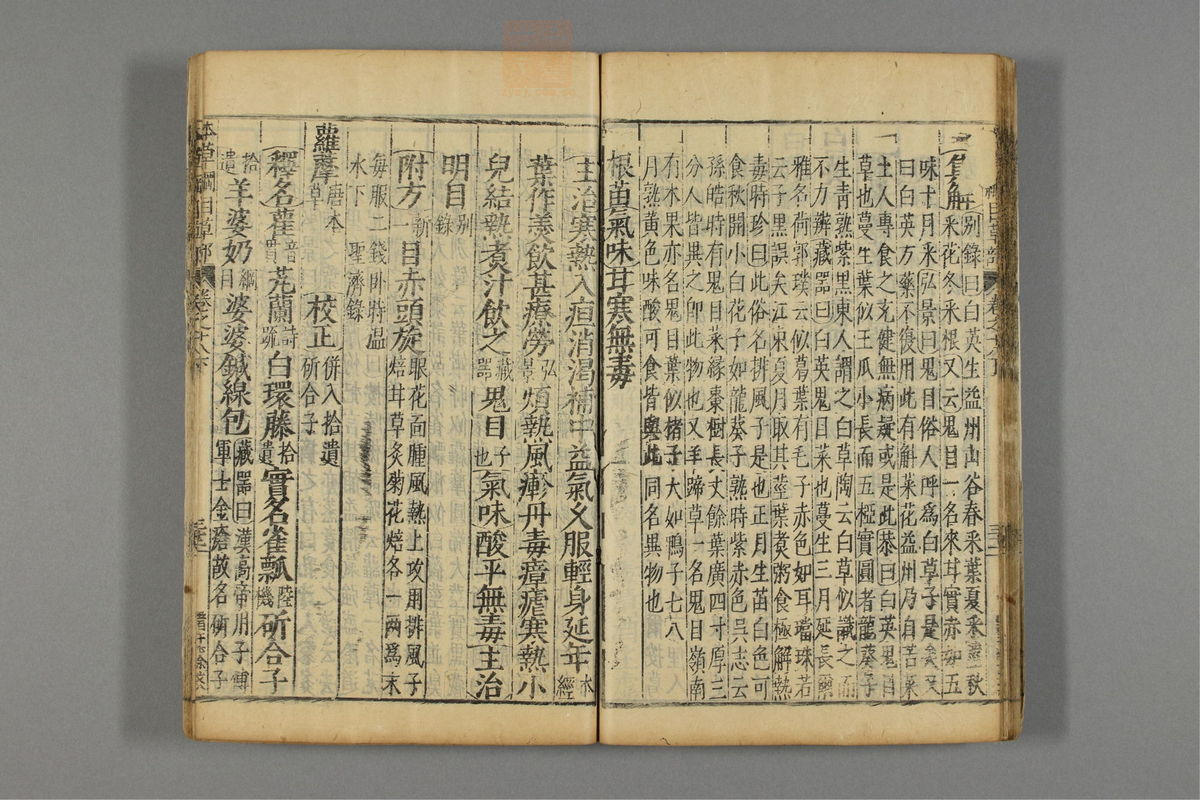 集解別錄曰白英生益州山谷春采葉夏采莖秋
采花冬采根又云鬼目一名來甘實赤如五
味十月采弘景曰鬼目俗人呼為白草子是矣又
曰白英方藥不復用此有斛菜花益州乃有苦菜
土人專食之充健無病疑或是此恭曰白英鬼目
草也蔓生葉似王瓜小長而五椏實圓者龍葵子
生青熟紫黑東人謂之白草陶云白草似識之而
不力辨藏器曰白英鬼目菜也蔓生三月延長爾
雅名苻郭璞云似葛葉有毛子赤色如耳璫珠若
云子黑誤矣江東夏月取其莖葉煮粥食極解熱
毒時珍曰此俗名排風子是也正月生苗白色可
食秋開小白花子如龍葵子熟時紫赤色吳志云
孫皓時有鬼目菜緣棗樹長丈餘葉廣四寸厚三
分人皆異之即此物也又羊蹄草一名鬼目嶺南
有木果亦名鬼目葉似楮子大如鴨子七八
月熟黄色味酸可食皆與此同名異物也
根苗氣味甘寒無毒
主治寒熱八疸消渴補中益氣久服輕身延年本經
葉作羹飲甚療勞弘景煩熱風疹丹毒瘴瘧寒熱小
兒結熱煮汁飲之藏器鬼目子也氣味酸平無毒主治
明目別錄
附方新一目赤頭旋眼花面腫風熱上攻用排風子焙甘草炙菊花焙各一兩為末
每服二錢臥時温水下聖濟錄
蘿藦唐本草校正併入拾遺斫合子
釋名雚音貫芄蘭詩疏白環藤拾遺實名雀瓢陸機斫合子
拾遺羊婆奶綱目婆婆鍼線包藏器曰漢高帝用子傅軍士金瘡故名斫合子